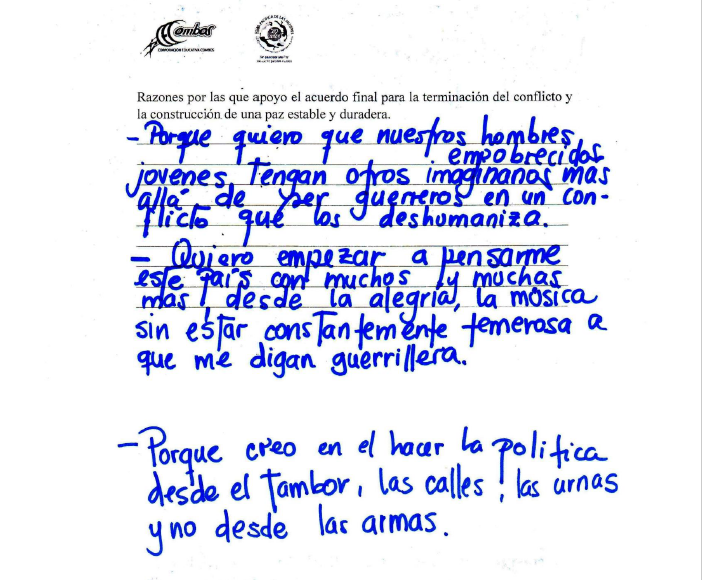 Combos
CORPORACIÓN EDUCATIVA COMBOS
Razones por las que apoyo el acuerdo final para la terminación del conflicto y
la construcción de una paz estable y duradera.
- Porque quiero que nuestros hombres,
empobrecidos
jovenes, tengan otros imaginarios mas
allá de ser guerreros en un con-
flicto que los deshumaniza.
- Quiero empezar a pensarme
este país con muchos y muchas
mas, desde la alegría, la música
sin estar constantemente temerosa a
que me digan guerrillera.
- Porque creo en el hacer la politica
desde el tambor, las calles, las urnas
y no desde las armas.